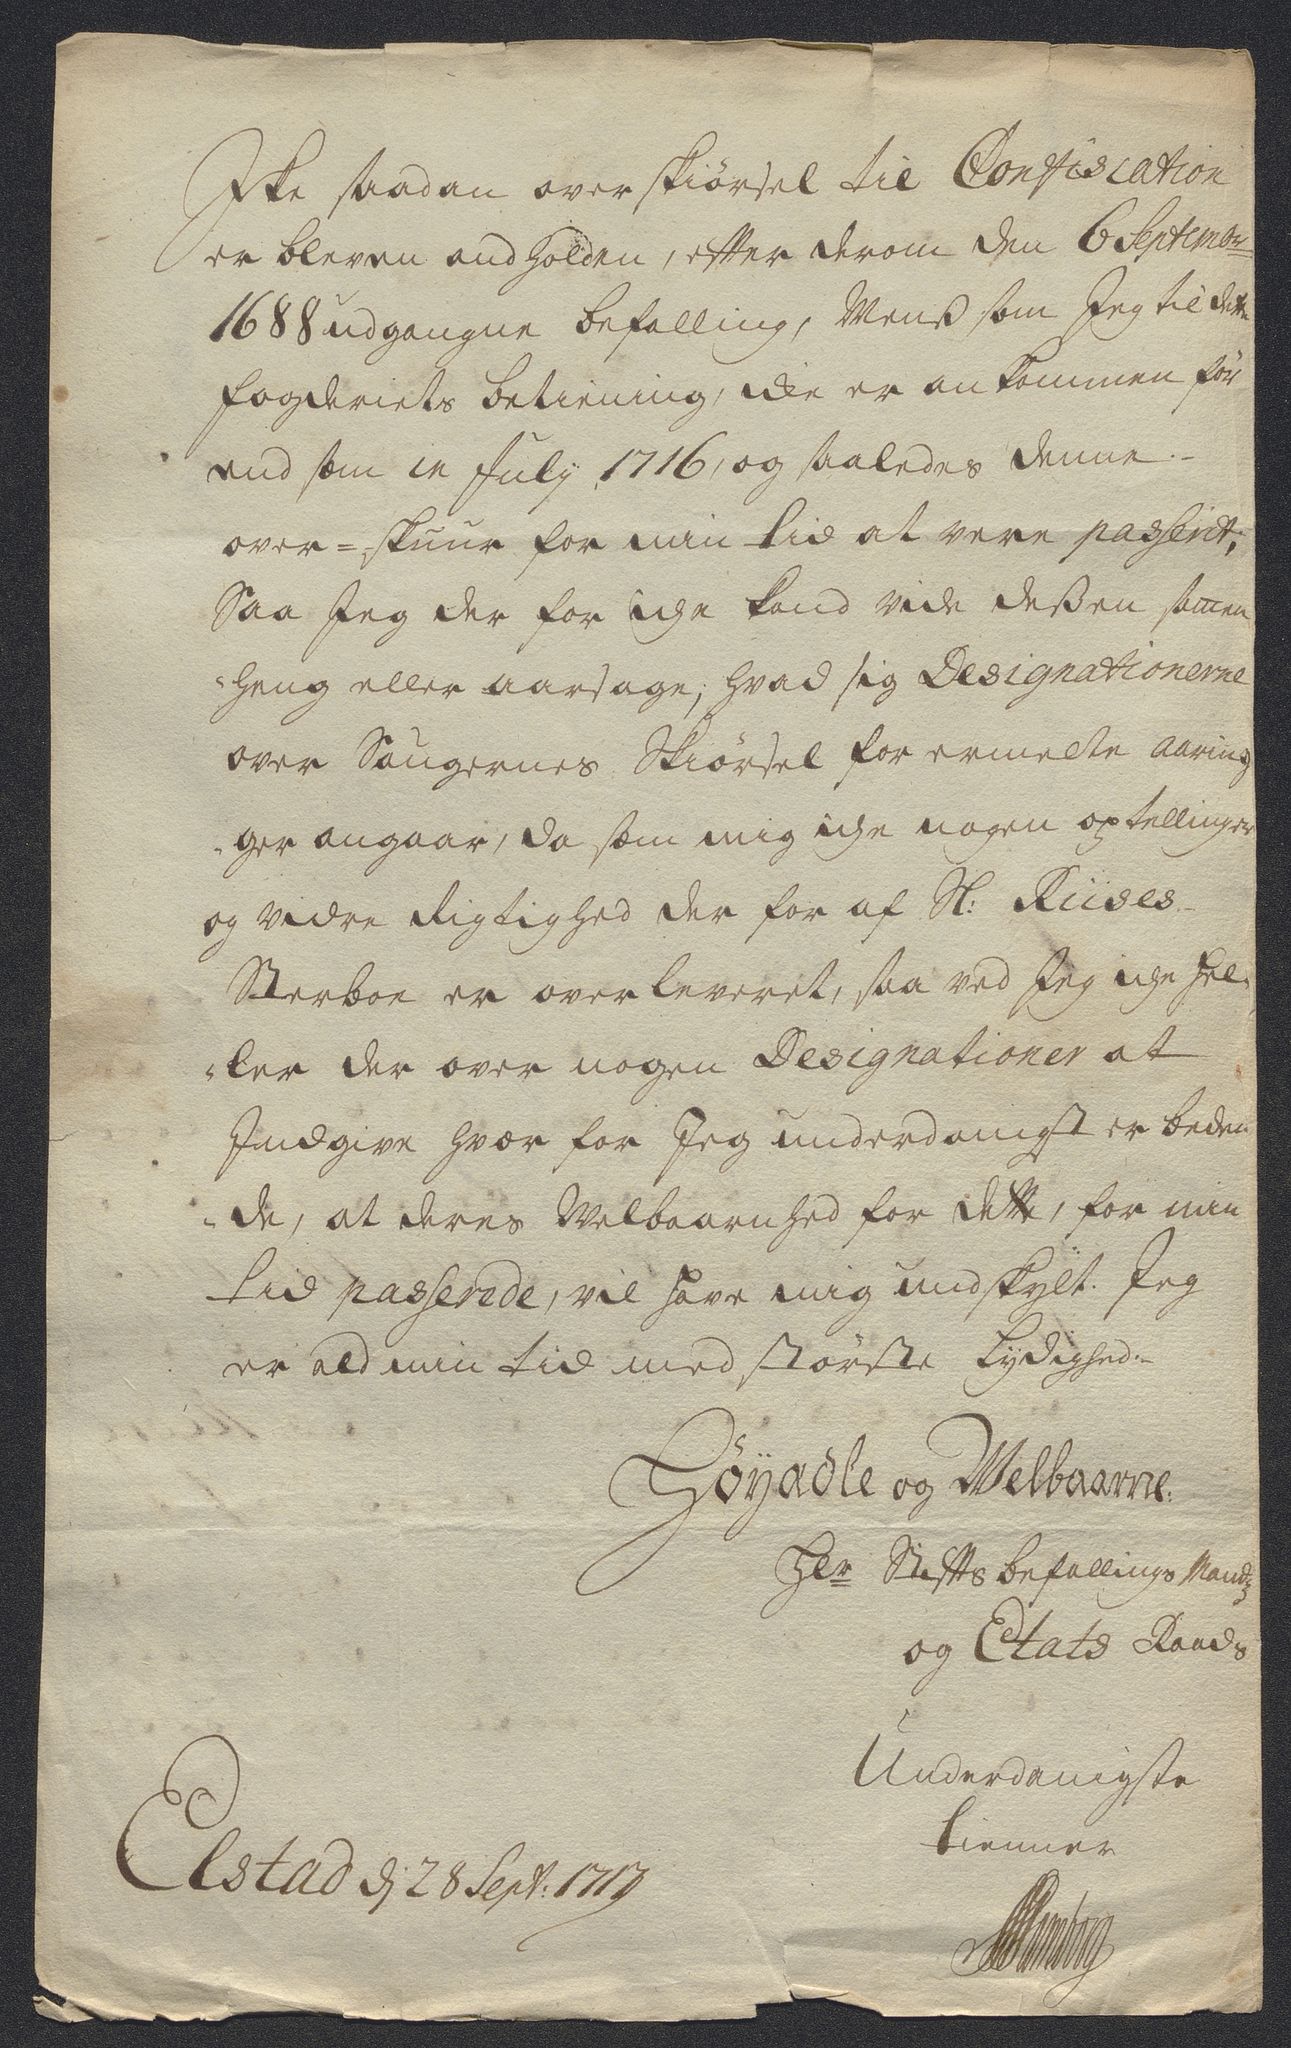 Iche saadan over skiørsel til Confiscation
er bleven andholden, efter derom den 6 Septembr
1688 udgangne befalling, Menß som Jeg til dette
fogderiets betiening, iche er ankommen før
end som in July 1716, og saaledes denne
over-skuur for min tid at vere passerit;
Saa Jeg der for iche kand vide deßen samen
heng eller aarsage; hvad sig Designationerne
over Saugernes Skiørsel for ermelte aarin
ger angaar, da som mig iche nogen optellinger
og vidre Rigtighed der for af Sl: Riises
Sterboe er overleveret, saa ved Jeg iche hel
ler der over nogen Designationer at
Indgive hvor for Jeg underdanigst er beden
de, at deres Welbaarnhed for dette, for min
tid passerede, vil have mig undskylt. Jeg
er ald min tid med største Lydighed
Høyædle og Welbaarne
Hr Stiftsbefallings Mands
og Etats Raads
Underdanigste
tienner
Elstad d 28 Sept: 1717